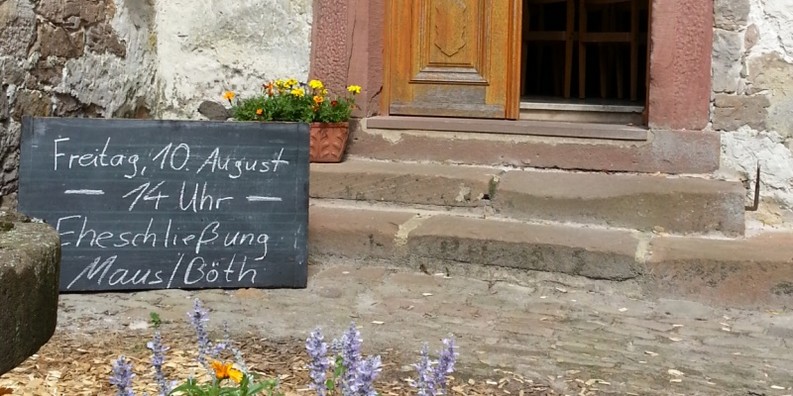 Freitag, 10. August
— 14 Uhr —
Eheschließung
Maus/Böth